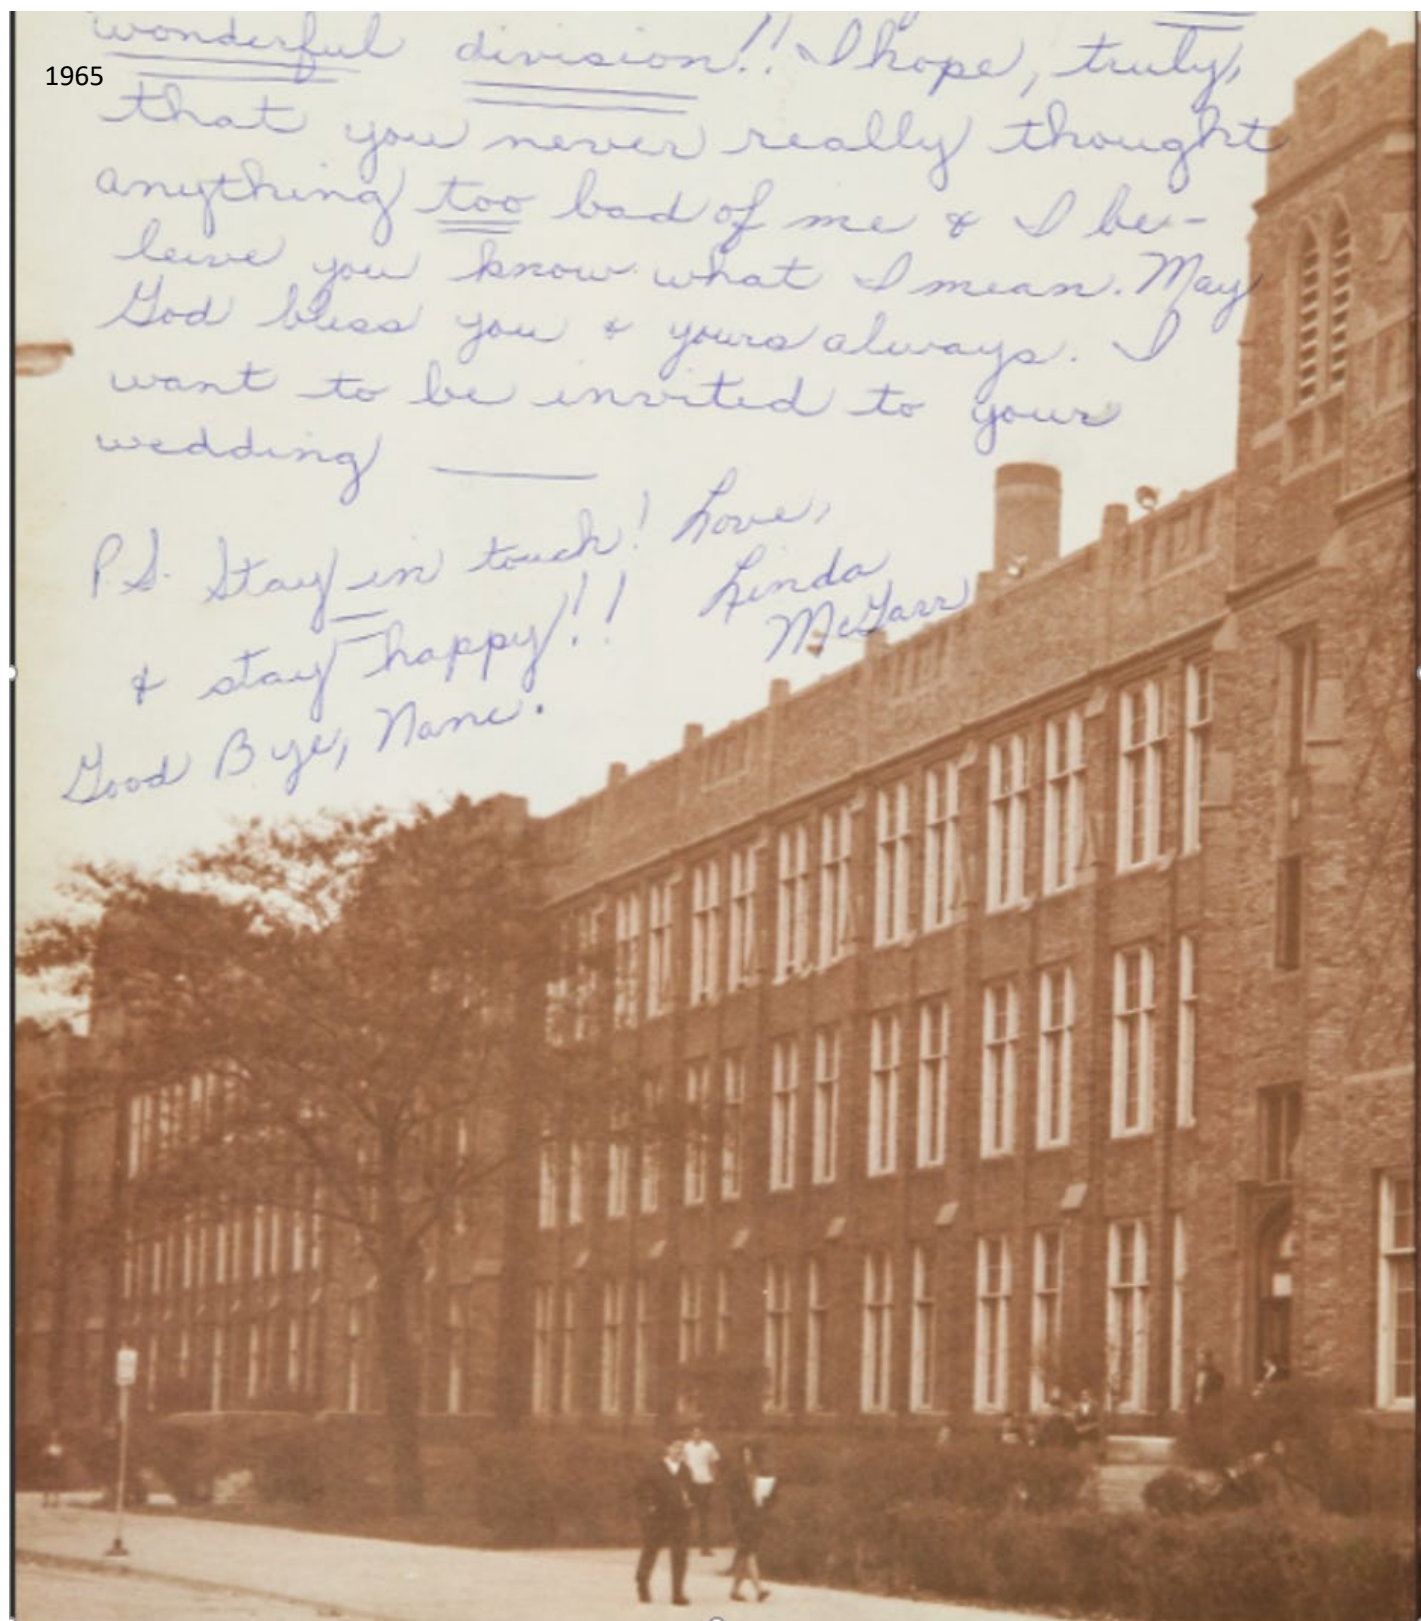 wonderful division!! I hope, truly,
1965
that you never really thought
anything too bad of me & I be-
leive you know what I mean. May
God bless you & yours always. I
want to be invited to your
wedding ——
P.S. Stay in touch! Love,
& stay happy!! Linda
McGarr
Good Bye, Nanc.